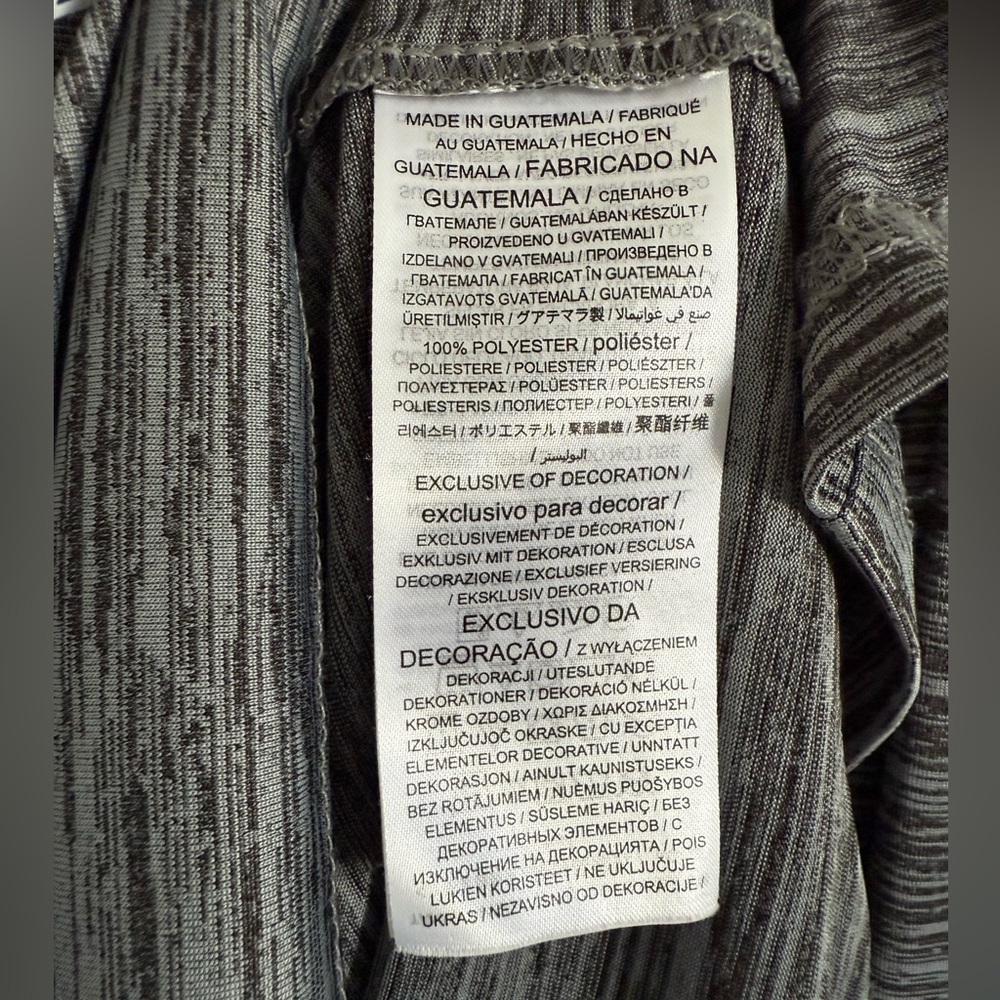 MADE IN GUATEMALA / FABRIQUÉ
AU GUATEMALA / HECHO EN
GUATEMALA / FABRICADO NA
GUATEMALA / СДЕЛАНО В
ГВАТЕМАЛЕ / GUATEMALÁBAN KÉSZÜLT /
PROIZVEDENO U GVATEMALI /
IZDELANO V GVATEMALI / ПРОИЗВЕДЕНО В
ГВАТЕМАЛА / FABRICAT ÎN GUATEMALA /
IZGATAVOTS GVATEMALĀ / GUATEMALA'DA
ÜRETILMIŞTIR / グアテマラ製 / صنع في غواتيمالا
100% POLYESTER / poliéster /
POLIESTERE / POLIESTER / POLIÉSZTER /
ΠΟΛΥΕΣΤΕΡΑΣ / POLÜESTER / POLIESTERS /
POLIESTERIS / ПОЛИЕСТЕР / POLYESTERI / 폴
리에스터 / ポリエステル / 聚酯纖維 / 聚酯纤维
/ البوليستر
EXCLUSIVE OF DECORATION /
exclusivo para decorar /
EXCLUSIVEMENT DE DÉCORATION /
EXKLUSIV MIT DEKORATION / ESCLUSA
DECORAZIONE / EXCLUSIEF VERSIERING
/ EKSKLUSIV DEKORATION /
EXCLUSIVO DA
DECORAÇÃO / Z WYŁĄCZENIEM
DEKORACJI / UTESLUTANDE
DEKORATIONER / DEKORÁCIÓ NÉLKÜL /
KROME OZDOBY / ΧΩΡΙΣ ΔΙΑΚΟΣΜΗΣΗ /
IZKLJUČUJOČ OKRASKE / CU EXCEPȚIA
ELEMENTELOR DECORATIVE / UNNTATT
DEKORASJON / AINULT KAUNISTUSEKS /
BEZ ROTĀJUMIEM / NUĖMUS PUOŠYBOS
ELEMENTUS / SÜSLEME HARIÇ / БЕЗ
ДЕКОРАТИВНЫХ ЭЛЕМЕНТОВ / С
ИЗКЛЮЧЕНИЕ НА ДЕКОРАЦИЯТА / POIS
LUKIEN KORISTEET / NE UKLJUČUJE
UKRAS / NEZAVISNO OD DEKORACIJE /